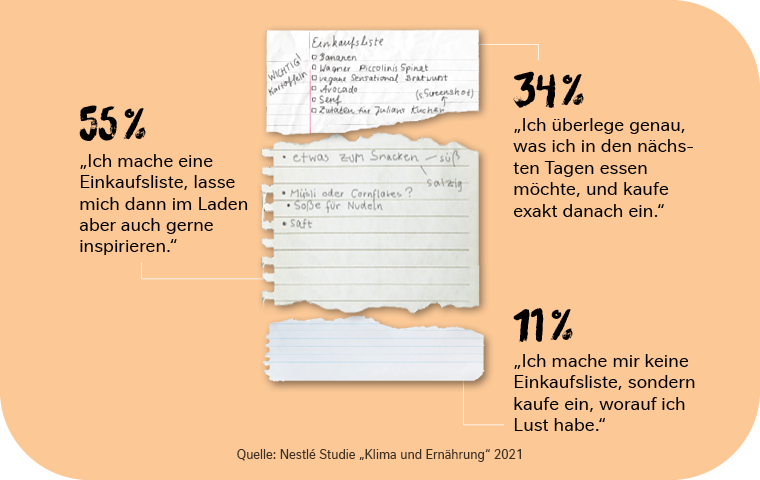 55%
„Ich mache eine
Einkaufsliste, lasse
mich dann im Laden
aber auch gerne
inspirieren.“
Einkaufsliste
WICHTIG!
Kartoffeln
Bananen
Wagner Piccolinis Spinat
vegane Sensational Bratwurst
Avocado
Senf
Zutaten für Julians Kuchen
Screenshot)
• etwas zum Snacken – süß
salzig
• Müsli oder Cornflakes?
• Soße für Nudeln
• Saft
34%
„Ich überlege genau,
was ich in den nächs-
ten Tagen essen
möchte, und kaufe
exakt danach ein.“
11%
„Ich mache mir keine
Einkaufsliste, sondern
kaufe ein, worauf ich
Lust habe.“
Quelle: Nestlé Studie „Klima und Ernährung“ 2021